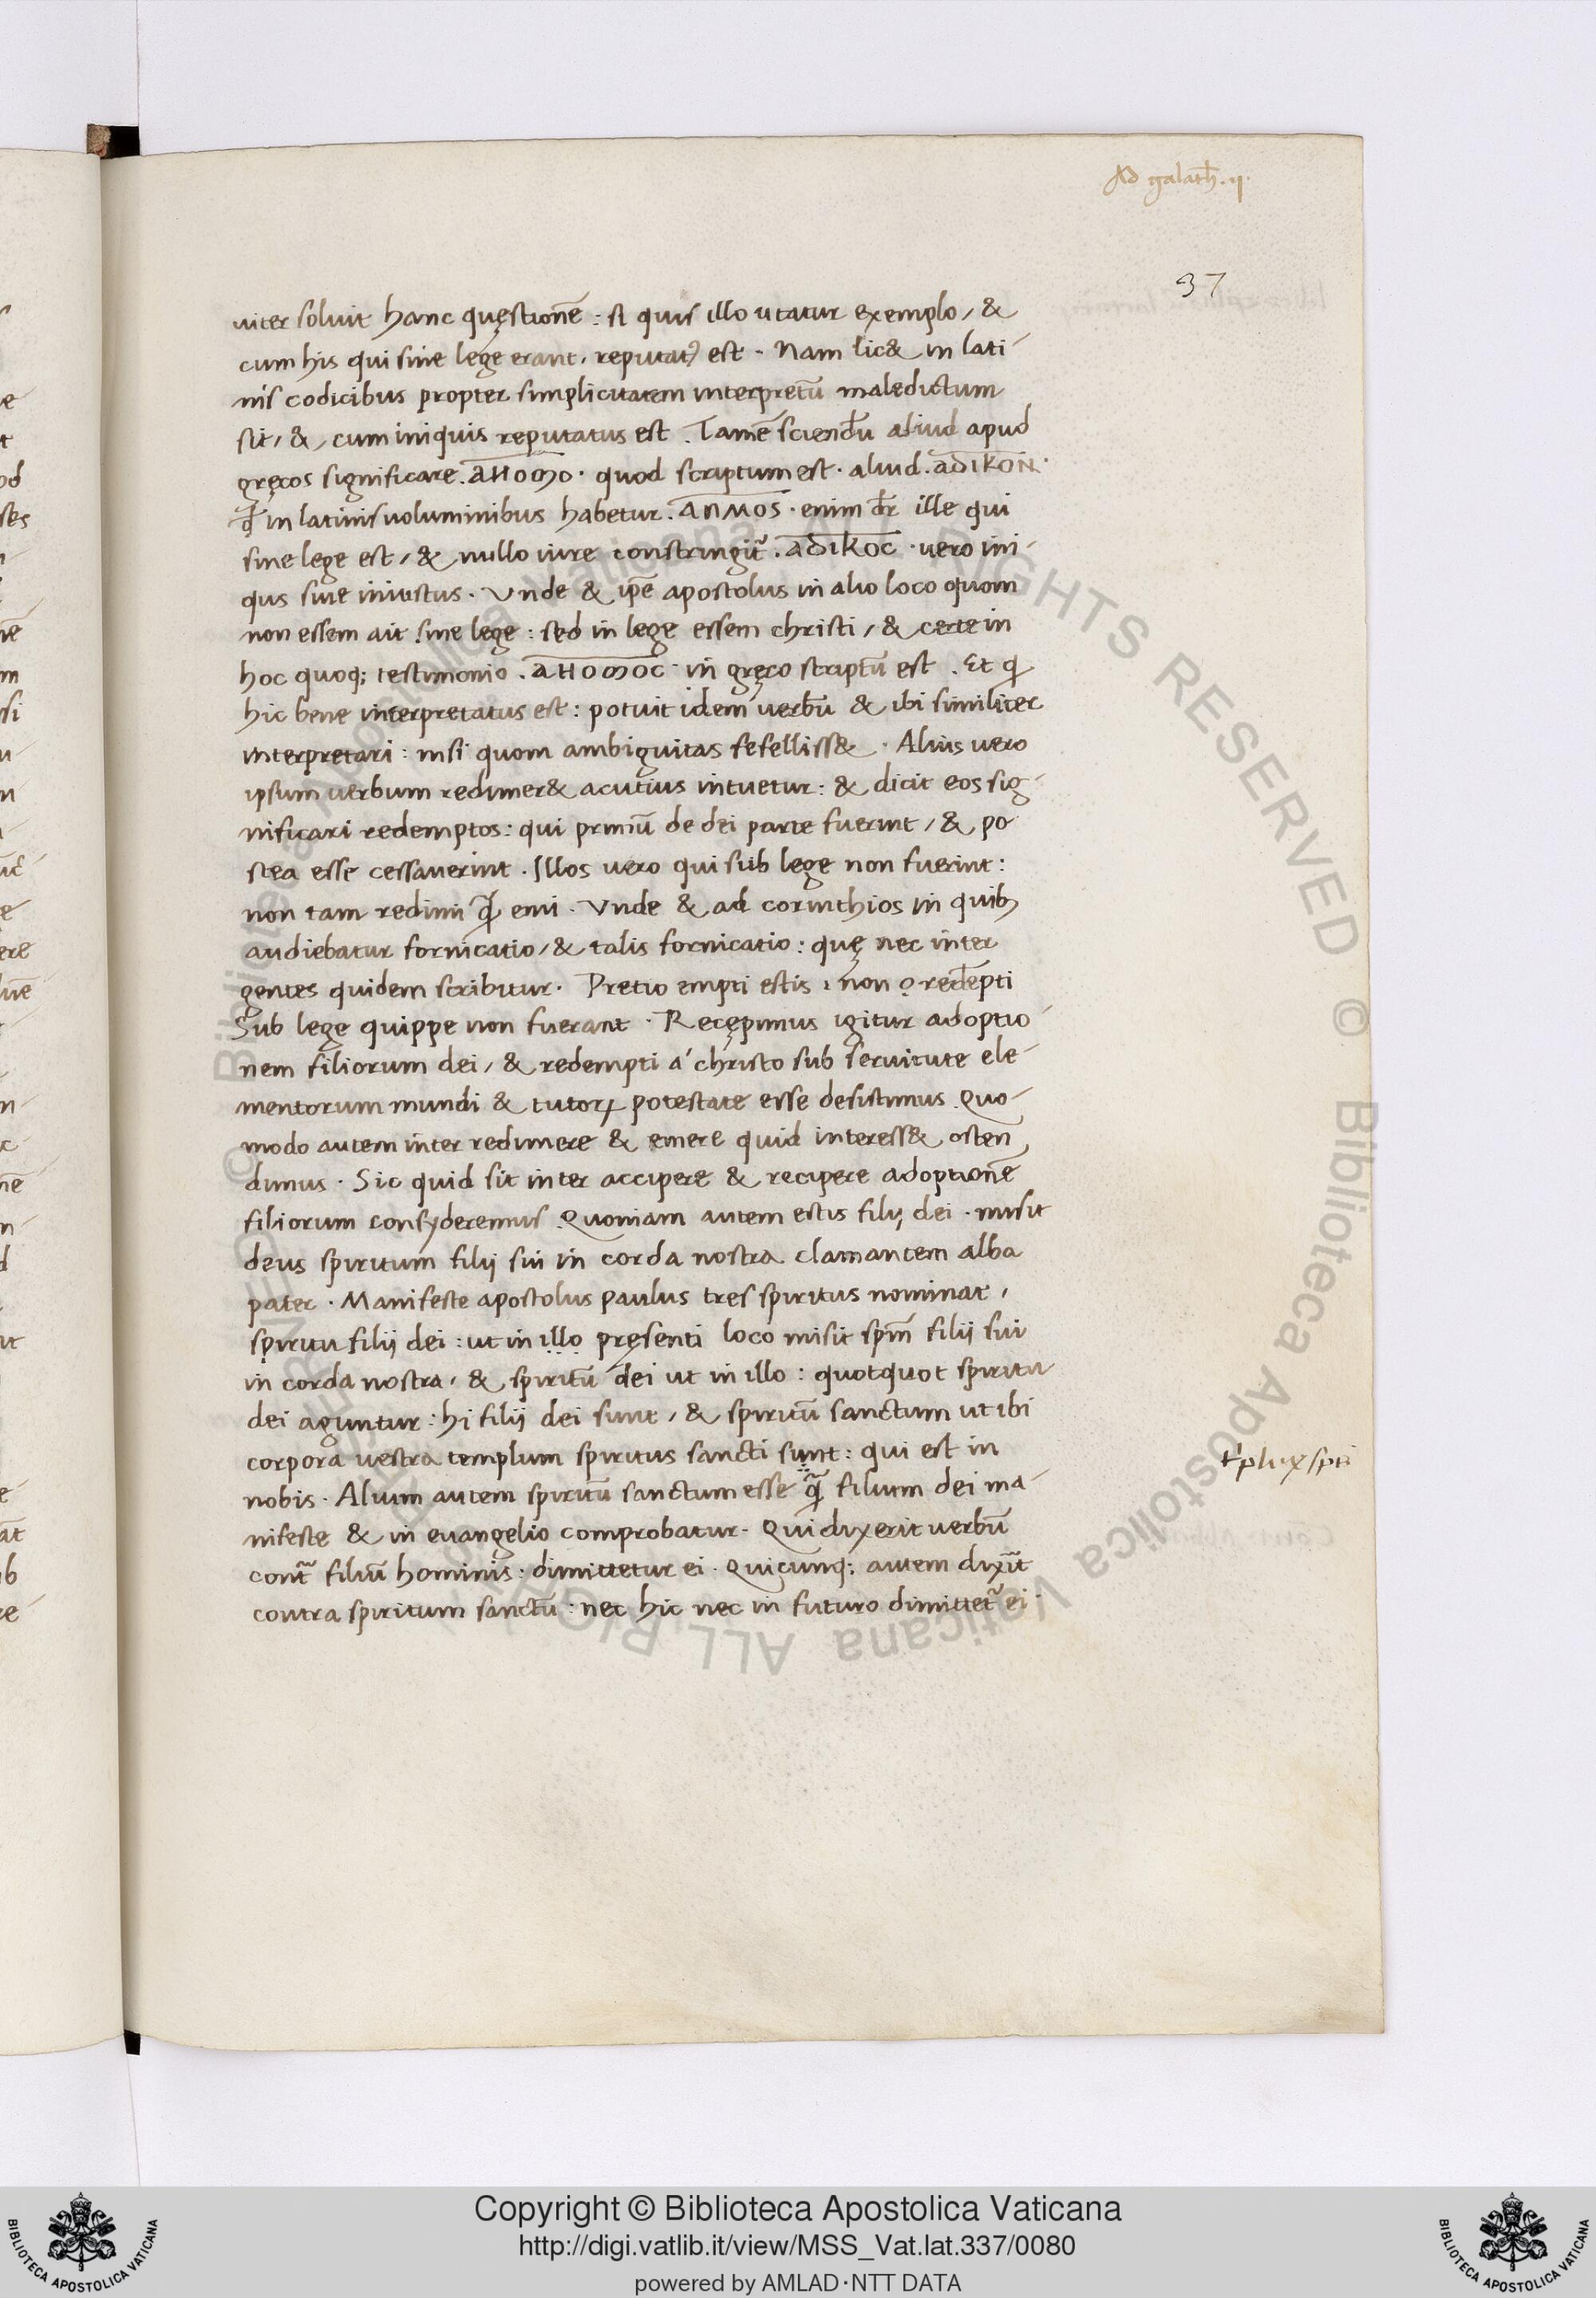 Ad galath̄. ij.
37
uiter soluit hanc quęstionē: si quis illo utatur exemplo, &
cum his qui sine lege erant, reputatꝰ est. Nam lic& in lati-
nis codicibus propter simplicitatem interpretū maledictum
sit, &, cum iniquis reputatus est. Tamē sciendū aliud apud
gręcos significare. aнoმo. quod scriptum est. aliud. aδIKON.
ꝙ in latinis uoluminibus habetur. ANMOS. enim dr̄ ille qui
sine lege est, & nullo iure constringit̃. aδIKOC. uero ini-
qus siue iniustus. Vnde & ip̄e apostolus in alio loco quom
non essem ait sine lege: sed in lege essem christi, & certe in
hoc quoq; testimonio. aнoმoc. in gręco scriptū est. Et ꝙ
hic bene interpretatus est: potuit idem uerbū & ibi similiter
interpretari: nisi quom ambiguitas fefelliss&. Alius uero
ipsum uerbum redimer& acutius intuetur: & dicit eos sig-
nificari redemptos: qui primū de dei parte fuerint, & po
stea esse cessauerint. Illos uero qui sub lege non fuerint:
non tam redimi ꝙ̃ emi. Vnde & ad corinthios in quibꝫ
audiebatur fornicatio, & talis fornicatio: quę nec inter
gentes quidem scribitur. Pretio empti estis, non redēpti
Sub lege quippe non fuerant. Recępimus igitur adoptio-
nem filiorum dei, & redempti á christo sub seruitute ele-
mentorum mundi & tutoꝝ potestate esse desistimus. Quo-
modo autem inter redimere & emere quid interess& osten
dimus. Sic quid sit inter accipere & recipere adoptionē
filiorum consyderemus. Quoniam autem estis filij dei. misit
deus spiritum filij sui in corda nostra clamantem abba
pater. Manifeste apostolus paulus tres spiritus nominat,
spiritu filij dei: ut in illo pręsenti loco misit spm̄ filij sui
in corda nostra, & spiritū dei ut in illo: quotquot spiritu
dei aguntur: hi filij dei sunt, & spiritū sanctum ut ibi
corpora uestra templum spiritus sancti sunt: qui est in
nobis. Alium autem spiritū sanctum esse ꝙ̃ filium dei ma-
nifeste & in euangelio comprobatur. Qui dixerit uerbū
cont̃ filiū hominis: dimittetur ei. Quicunq; autem dixit̃
contra spiritum sanctū: nec hic nec in futuro dimittet̃ ei.
© Biblioteca Apostolica Vaticana ALL RIGHTS RESERVED © Biblioteca Apostolica Vaticana ALL RIGHTS RESERVED
Copyright © Biblioteca Apostolica Vaticana
http://digi.vatlib.it/view/MSS_Vat.lat.337/0080
powered by AMLAD·NTT DATA
BIBLIOTECA APOSTOLICA VATICANA
BIBLIOTECA APOSTOLICA VATICANA